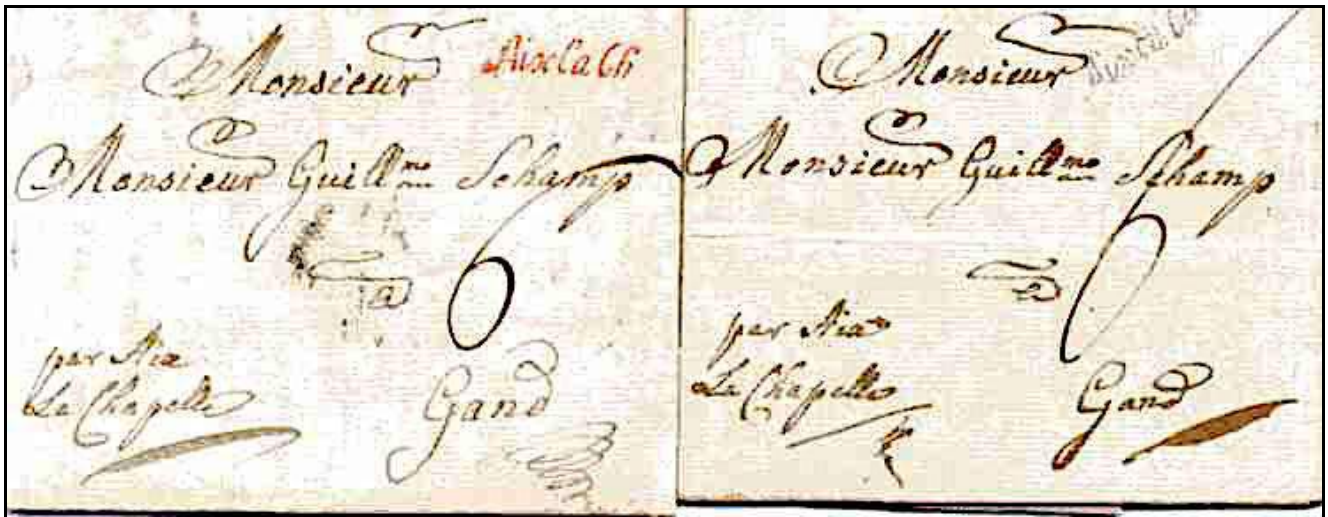 Monsieur
Aix la Ch
Monsieur Guillme Schamp
a
6
par Aix
La Chapelle
Gand
Monsieur
Monsieur Guillme Schamp
a
6
par Aix
La Chapelle
Gand